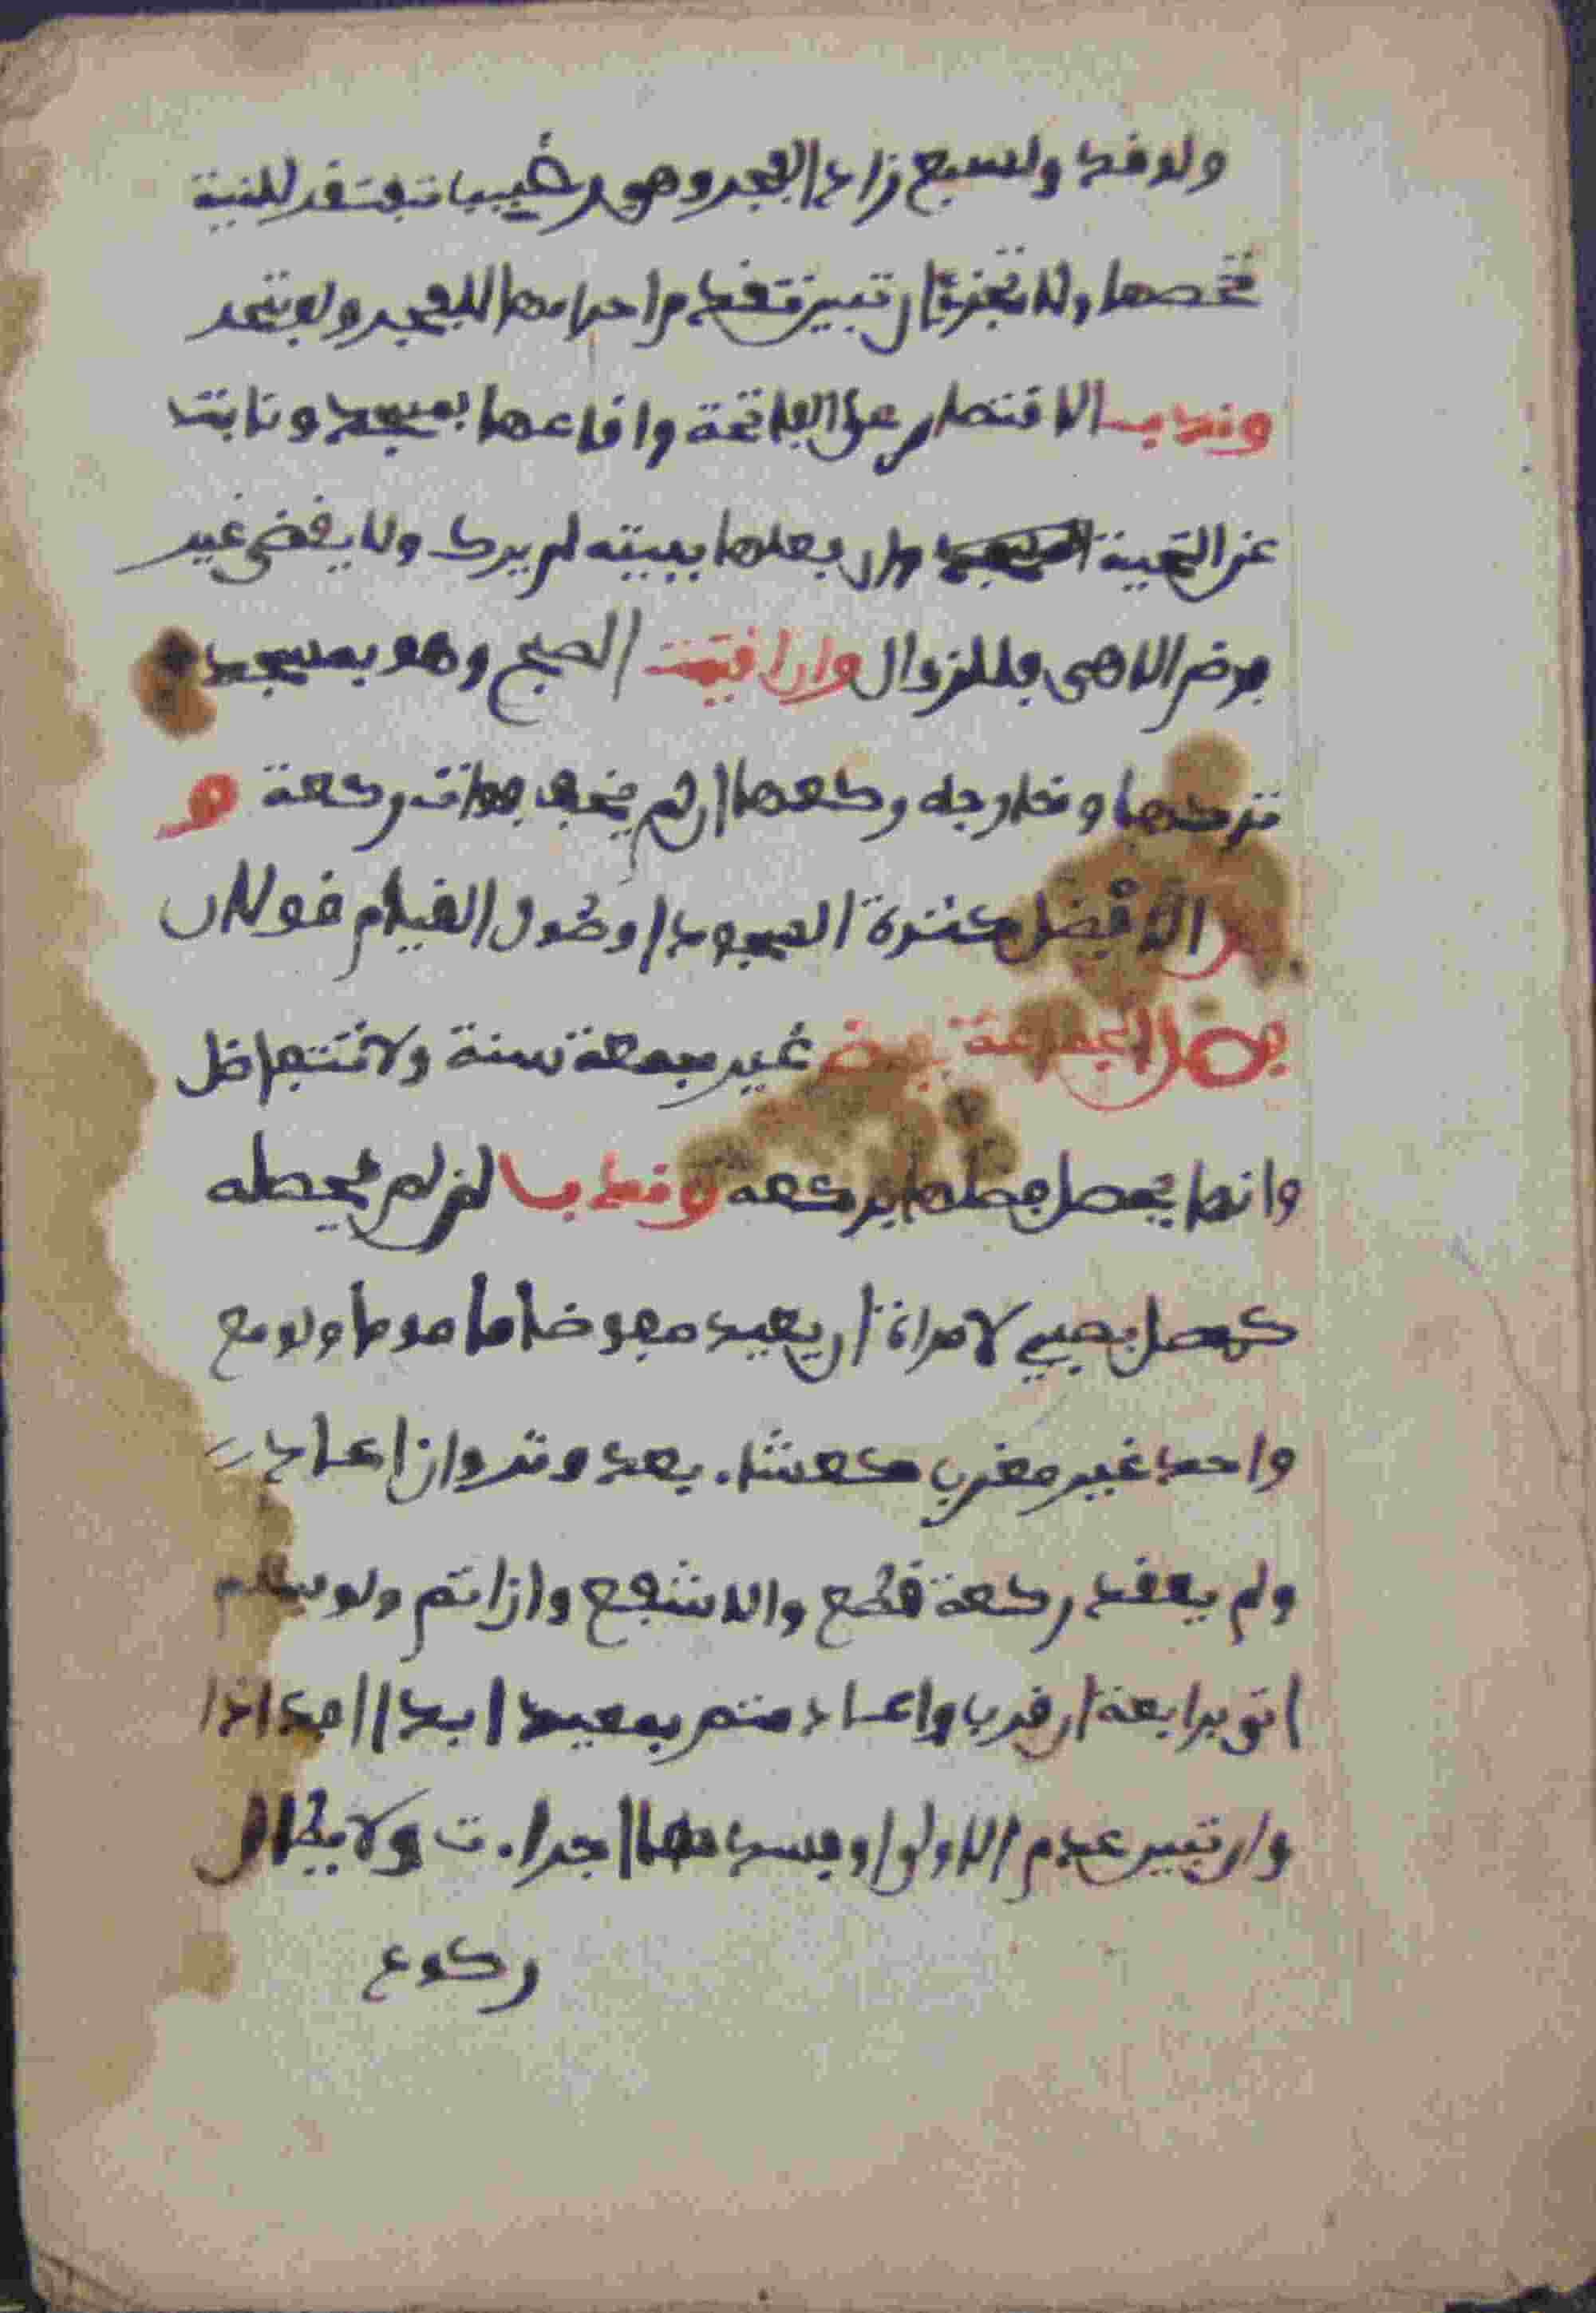 ولوقت ولصبح نراد الفجر وهي رغيبة تفتقر لنية
تخصها ولا تجزئ ان تبين تقدم احرامها للفجر ولو بتحر
وندب الاقتصار على الفاتحة وايقاعها بمسجد ونابت
عن التحية وان فعلها ببيته لم يركع ولا يقضى غير
فرض الا هي فللزوال وان اقيمت الصبح وهو بمسجد
تركها وخارجه ركعها ان لم يخف فوات ركعة و
هل الافضل كثرة السجود او طول القيام قولان
فصل الجماعة بفرض غير جمعة سنة ولا تتفاضل
وانما يحصل فضلها بركعة وندب لمن لم يحصله
كمصل بصبي لا امراة ان يعيد مفوضا ماموما ولو مع
واحد غير مغرب كعشاء بعد وتر وان اعاد
ولم يعقد ركعة قطع والا شفع وان اتم ولو سلم
اتى برابعة ان قرب واعاد مؤتم بمعيد ابدا افذاذا
وان تبين عدم الاولى او فسادها اجزات ولا يطال
ركوع